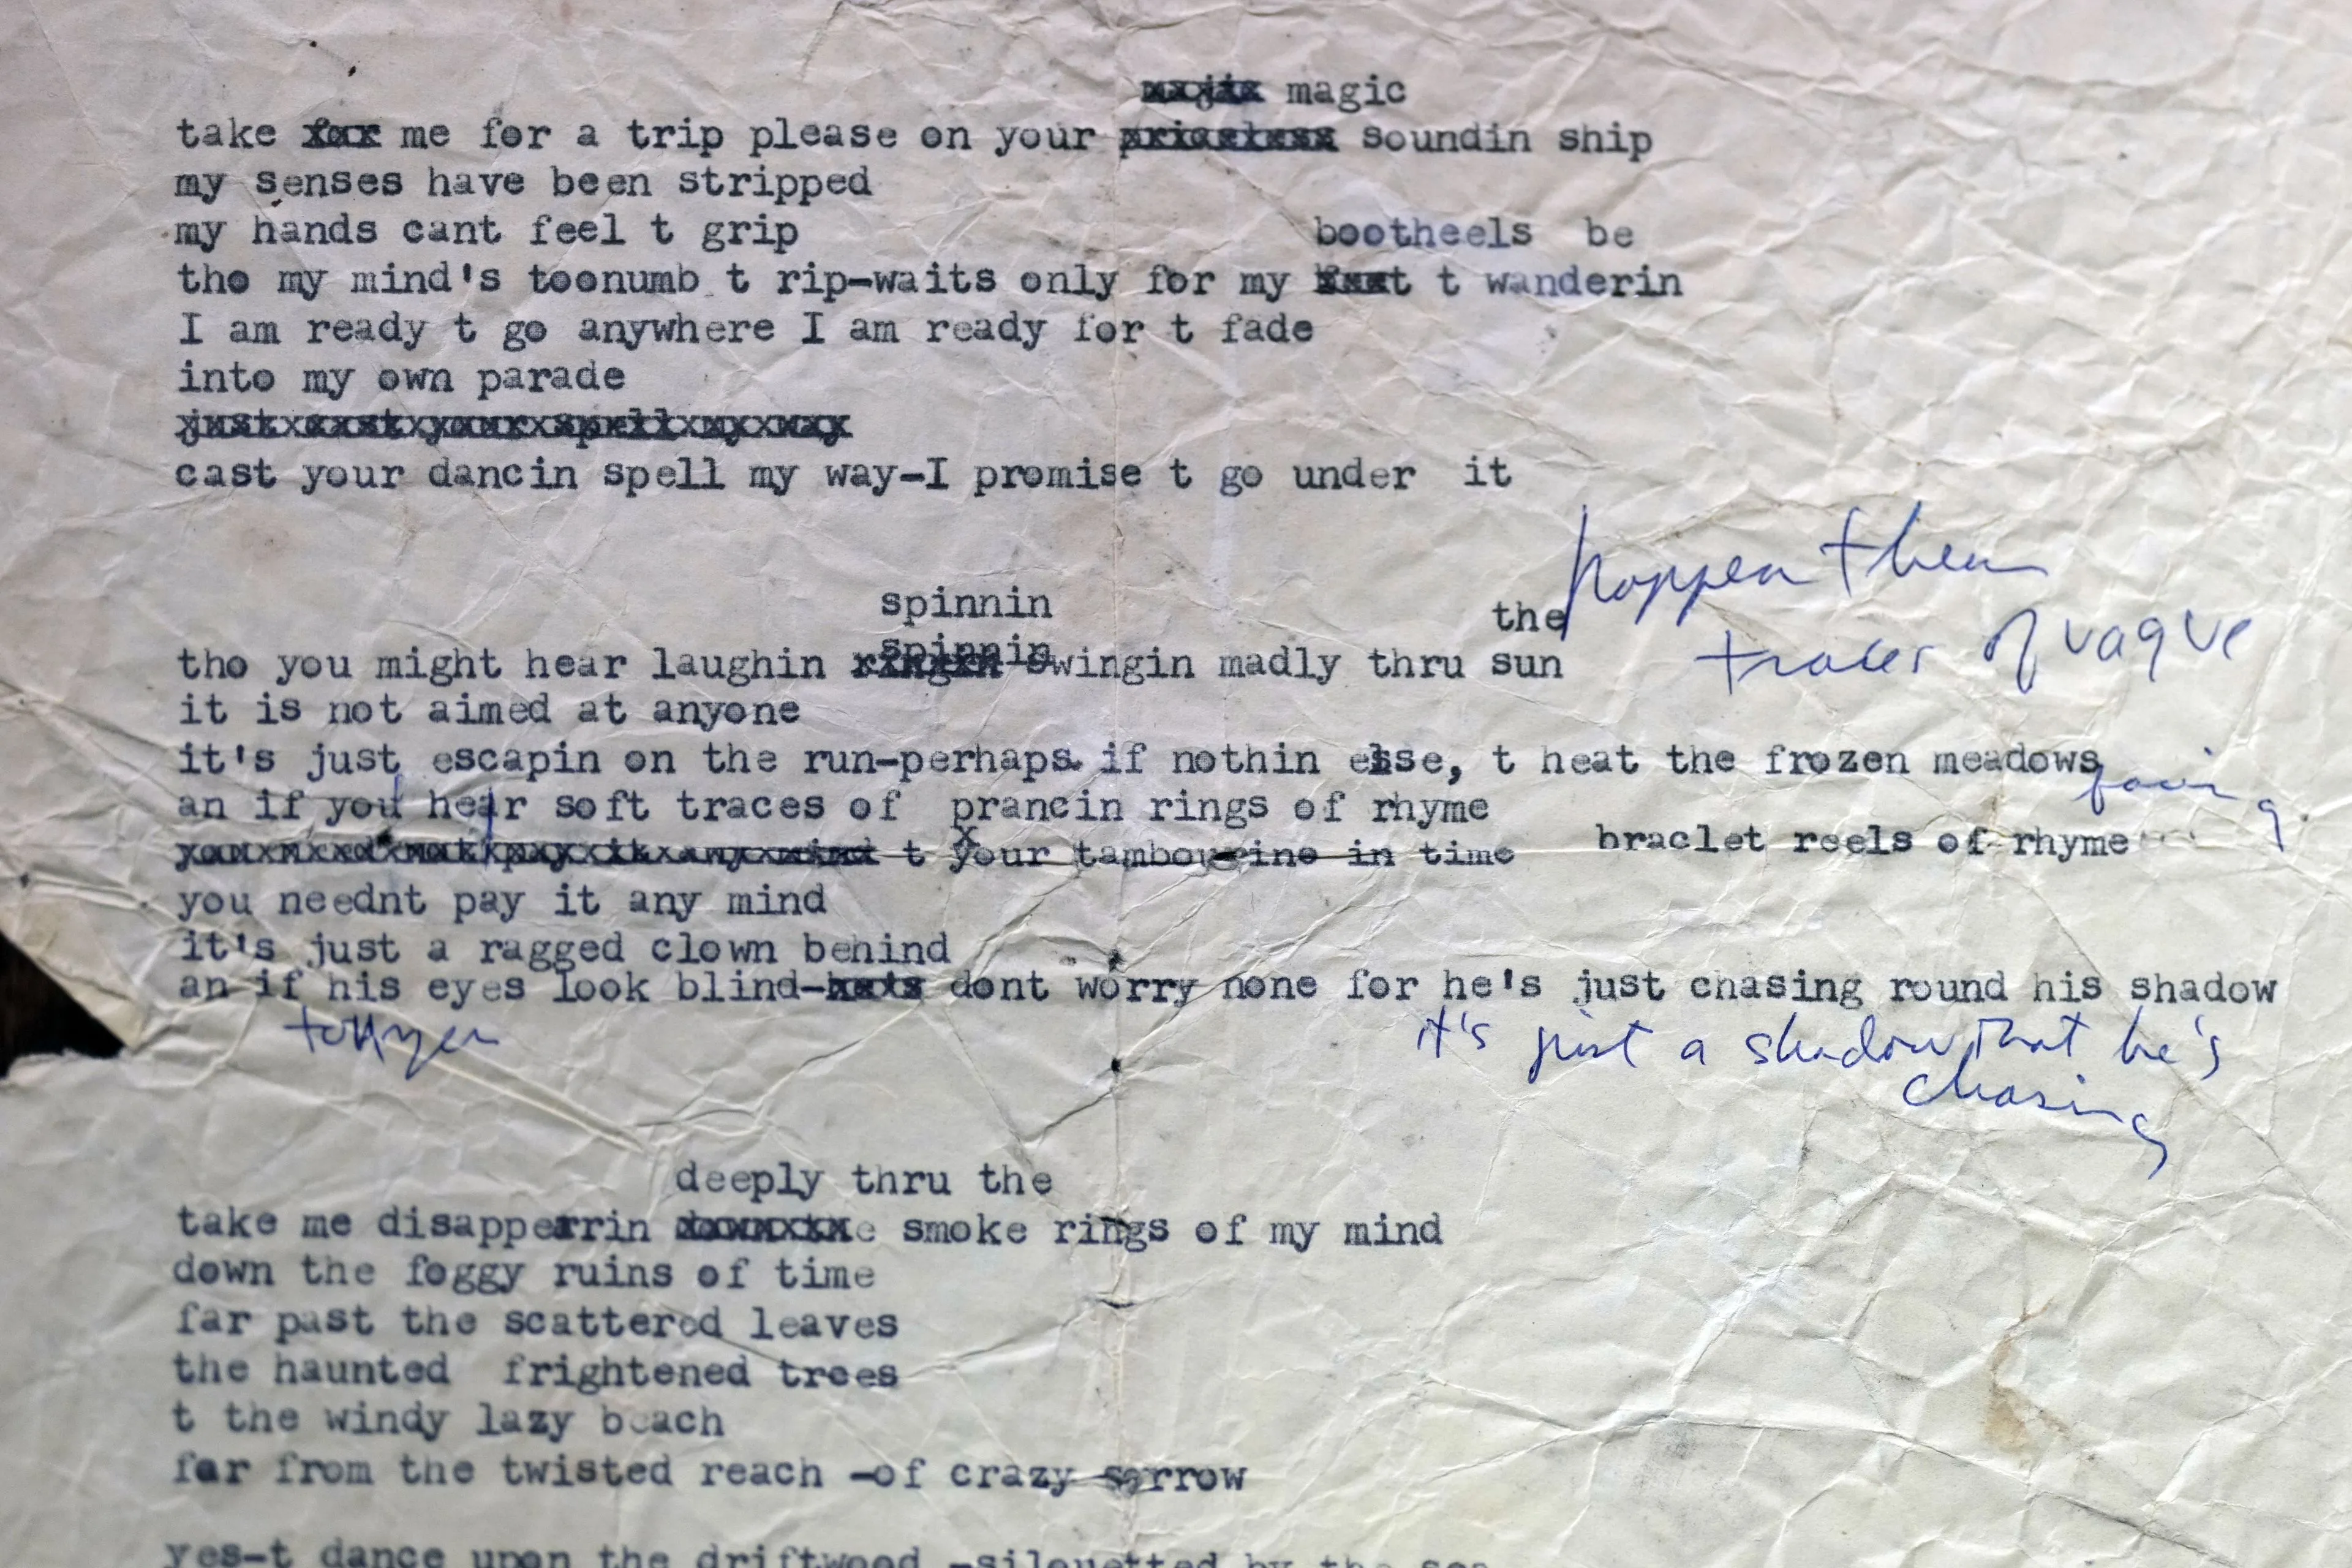 majik magic
take for me for a trip please on your priceless soundin ship
my senses have been stripped
my hands cant feel t grip
bootheels be
tho my mind's toonumb t rip-waits only for my t wanderin
I am ready t go anywhere I am ready for t fade
into my own parade
just cast your spell my way
cast your dancin spell my way-I promise t go under it
spinnin
the
spinnin
tho you might hear laughin ringin swingin madly thru sun
traces of vague
it is not aimed at anyone
it's just escapin on the run-perhaps if nothin else, t heat the frozen meadows
an if you hear soft traces of prancin rings of rhyme
you need not pay it any mind t your tambourine in time braclet reels of rhyme
you neednt pay it any mind
it's just a ragged clown behind
an if his eyes look blind-he's dont worry none for he's just chasing round his shadow
it's just a shadow that he's
chasing
deeply thru the
take me disapperrin down the smoke rings of my mind
down the foggy ruins of time
far past the scattered leaves
the haunted frightened trees
t the windy lazy beach
far from the twisted reach -of crazy sorrow
yes-t dance upon the driftwood -silouetted by the sea